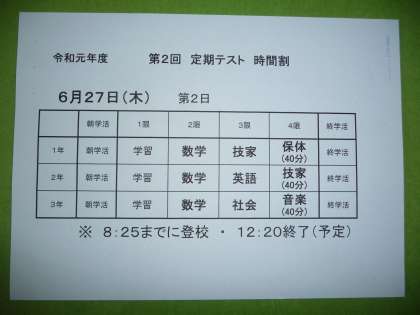 令和元年度 第2回 定期テスト 時間割
6月27日(木) 第2日
朝学活 1限 2限 3限 4限 終学活
1年 朝学活 学習 数学 技家 保体(40分) 終学活
2年 朝学活 学習 数学 英語 技家(40分) 終学活
3年 朝学活 学習 数学 社会 音楽(40分) 終学活
※ 8:25までに登校 ・ 12:20終了(予定)